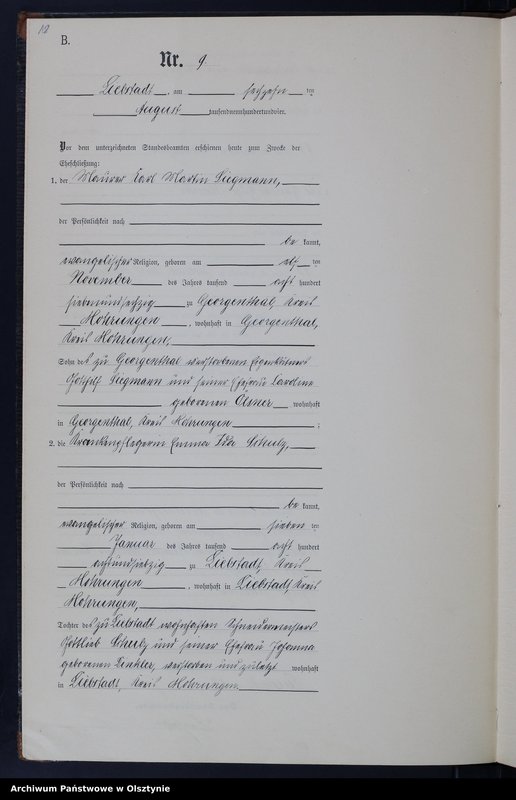 10
B.
Nr. 9
Liebstadt, am sechzehn ten
August tausendneunhundertundvier.
Vor dem unterzeichneten Standesbeamten erschienen heute zum Zwecke der
Eheschließung:
1. der Maurer Karl Martin Siegmann,
der Persönlichkeit nach
be kannt,
evangelischer Religion, geboren am elf ten
November des Jahres tausend acht hundert
siebenundsechzig zu Georgenthal, Kreis
Mohrungen, wohnhaft in Georgenthal,
Kreis Mohrungen,
Sohn des zu Georgenthal verstorbenen Eigenkätners
Gottfried Siegmann und seiner Ehefrau Caroline
geborenen wohnhaft
in Georgenthal, Kreis Mohrungen;
2. die Krankenpflegerin Emma Ida Schulz,
der Persönlichkeit nach
be kannt,
evangelischer Religion, geboren am sieben ten
Januar des Jahres tausend acht hundert
achtundsiebzig zu Liebstadt, Kreis
Mohrungen, wohnhaft in Liebstadt, Kreis
Mohrungen,
Tochter des zu Liebstadt wohnhaften Schneidermeisters
Gottlieb Schulz und seiner Ehefrau Johanna
geborenen verstorben und zuletzt wohnhaft
in Liebstadt, Kreis Mohrungen.
Archiwum Państwowe w Olsztynie